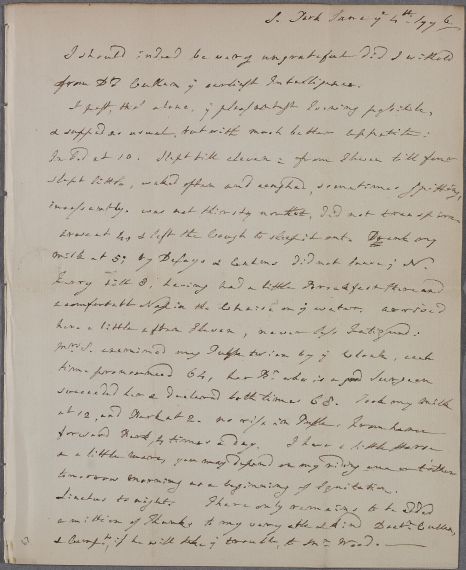 S. Park June yͤ 4ᵗʰ 1776.
I should indeed be very ungrateful did I withold
from Dʳ Cullen yͤ earliest Intelligence.
I past, tho' alone, yͤ pleasantest Evening possible,
& supped as usual, but with much better appetite:
In Bed at 10. Slept till eleven: from Eleven till four
slept little, waked often and coughed, sometimes spitting,
incessantly. was not thirsty nor hot, did not transpire.
arose at 4, & left the Cough to sleep it out. Drank my
milk at 5; by Delays & did not leave yͤ N.
Ferry till 8; having had a little Breakfast there and
a comfortable Nap in the Chaise on yͤ water. arrived
here a little after Eleven, never less fatigued.
Mʳˢ S. examined my Pulse twice by yͤ Clock, each
time pronounced 64, her Bʳ who is a good Surgeon
succeeded her & declared both times 68. Took my milk
at 12, and Bark at 2. no rise in Pulse. from hence
forward Bark 4 times a day. I have a little Horse
& a little mare, you may depend on my riding one or t'other
tomorrow morning as a beginning of Equitation.
Linctus to night. There only remains to be added
a million of Thanks to my very able & kind Doctʳ Cullen,
& Compᵗˢ, if he will take yͤ trouble, to Mʳ Wood.